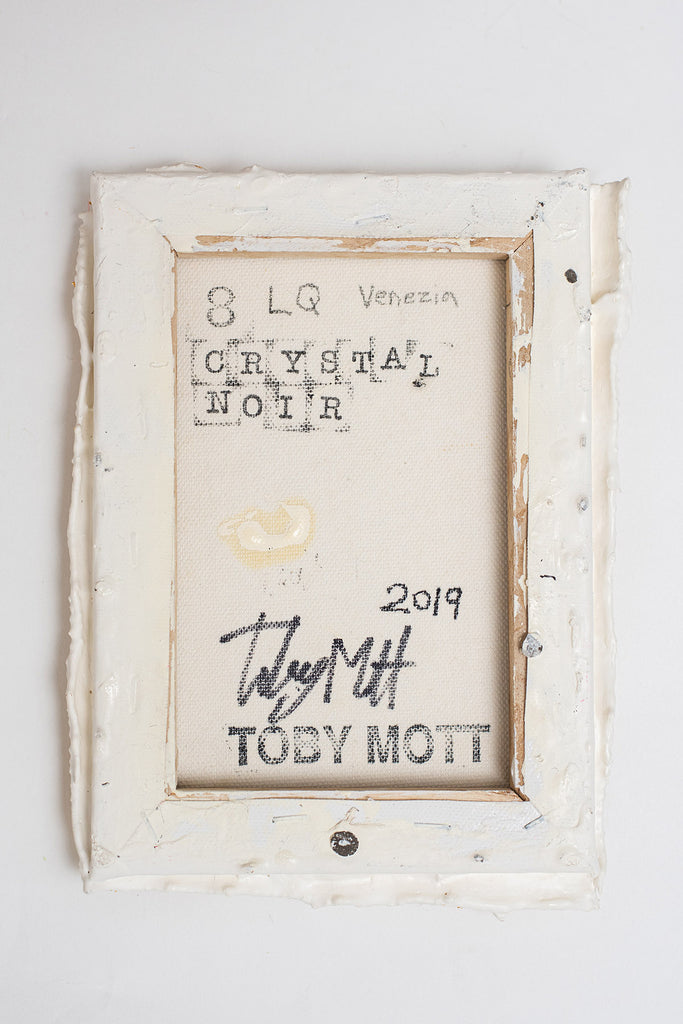 8 LQ Venezia
CRYSTAL
NOIR
2019
Toby Mott
TOBY MOTT